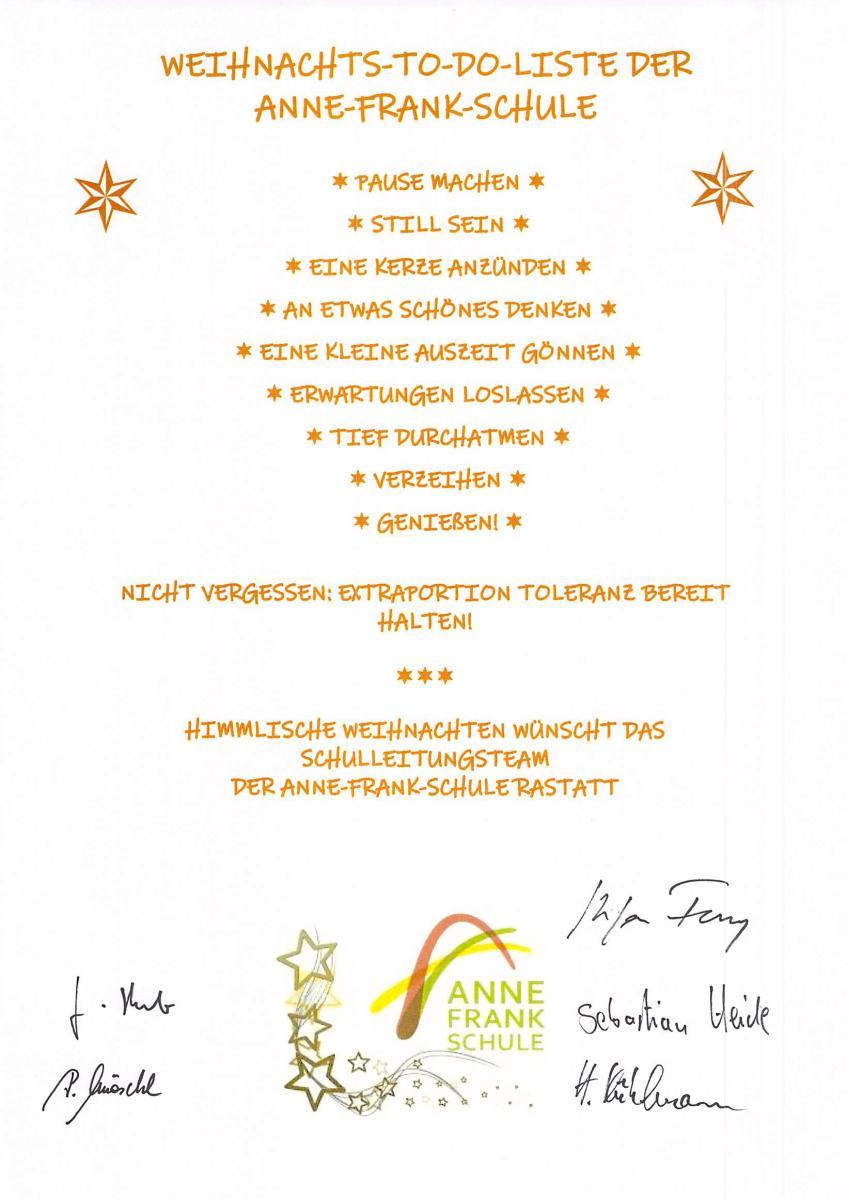 WEIHNACHTS-TO-DO-LISTE DER
ANNE-FRANK-SCHULE
✶ PAUSE MACHEN ✶
✶ STILL SEIN ✶
✶ EINE KERZE ANZÜNDEN ✶
✶ AN ETWAS SCHÖNES DENKEN ✶
✶ EINE KLEINE AUSZEIT GÖNNEN ✶
✶ ERWARTUNGEN LOSLASSEN ✶
✶ TIEF DURCHATMEN ✶
✶ VERZEIHEN ✶
✶ GENIEßEN! ✶
NICHT VERGESSEN: EXTRAPORTION TOLERANZ BEREIT
HALTEN!
✶✶✶
HIMMLISCHE WEIHNACHTEN WÜNSCHT DAS
SCHULLEITUNGSTEAM
DER ANNE-FRANK-SCHULE RASTATT
ANNE
FRANK
SCHULE
Sebastian
H.
P.